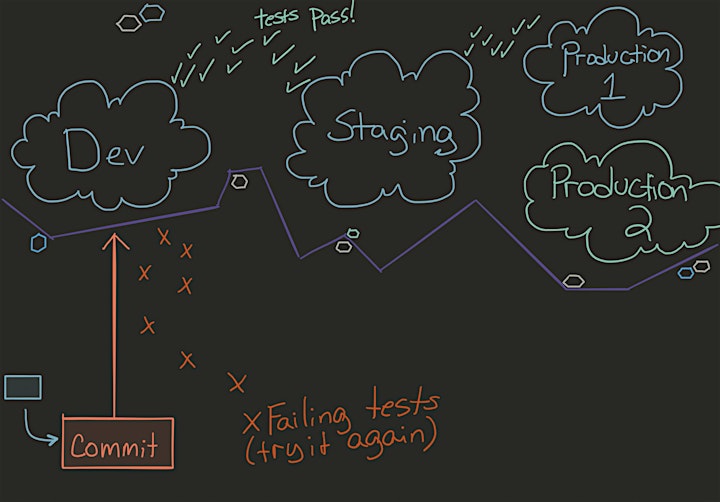 tests Pass!
Dev
Staging
Production
1
Production
2
Commit
x Failing tests
(try it again)